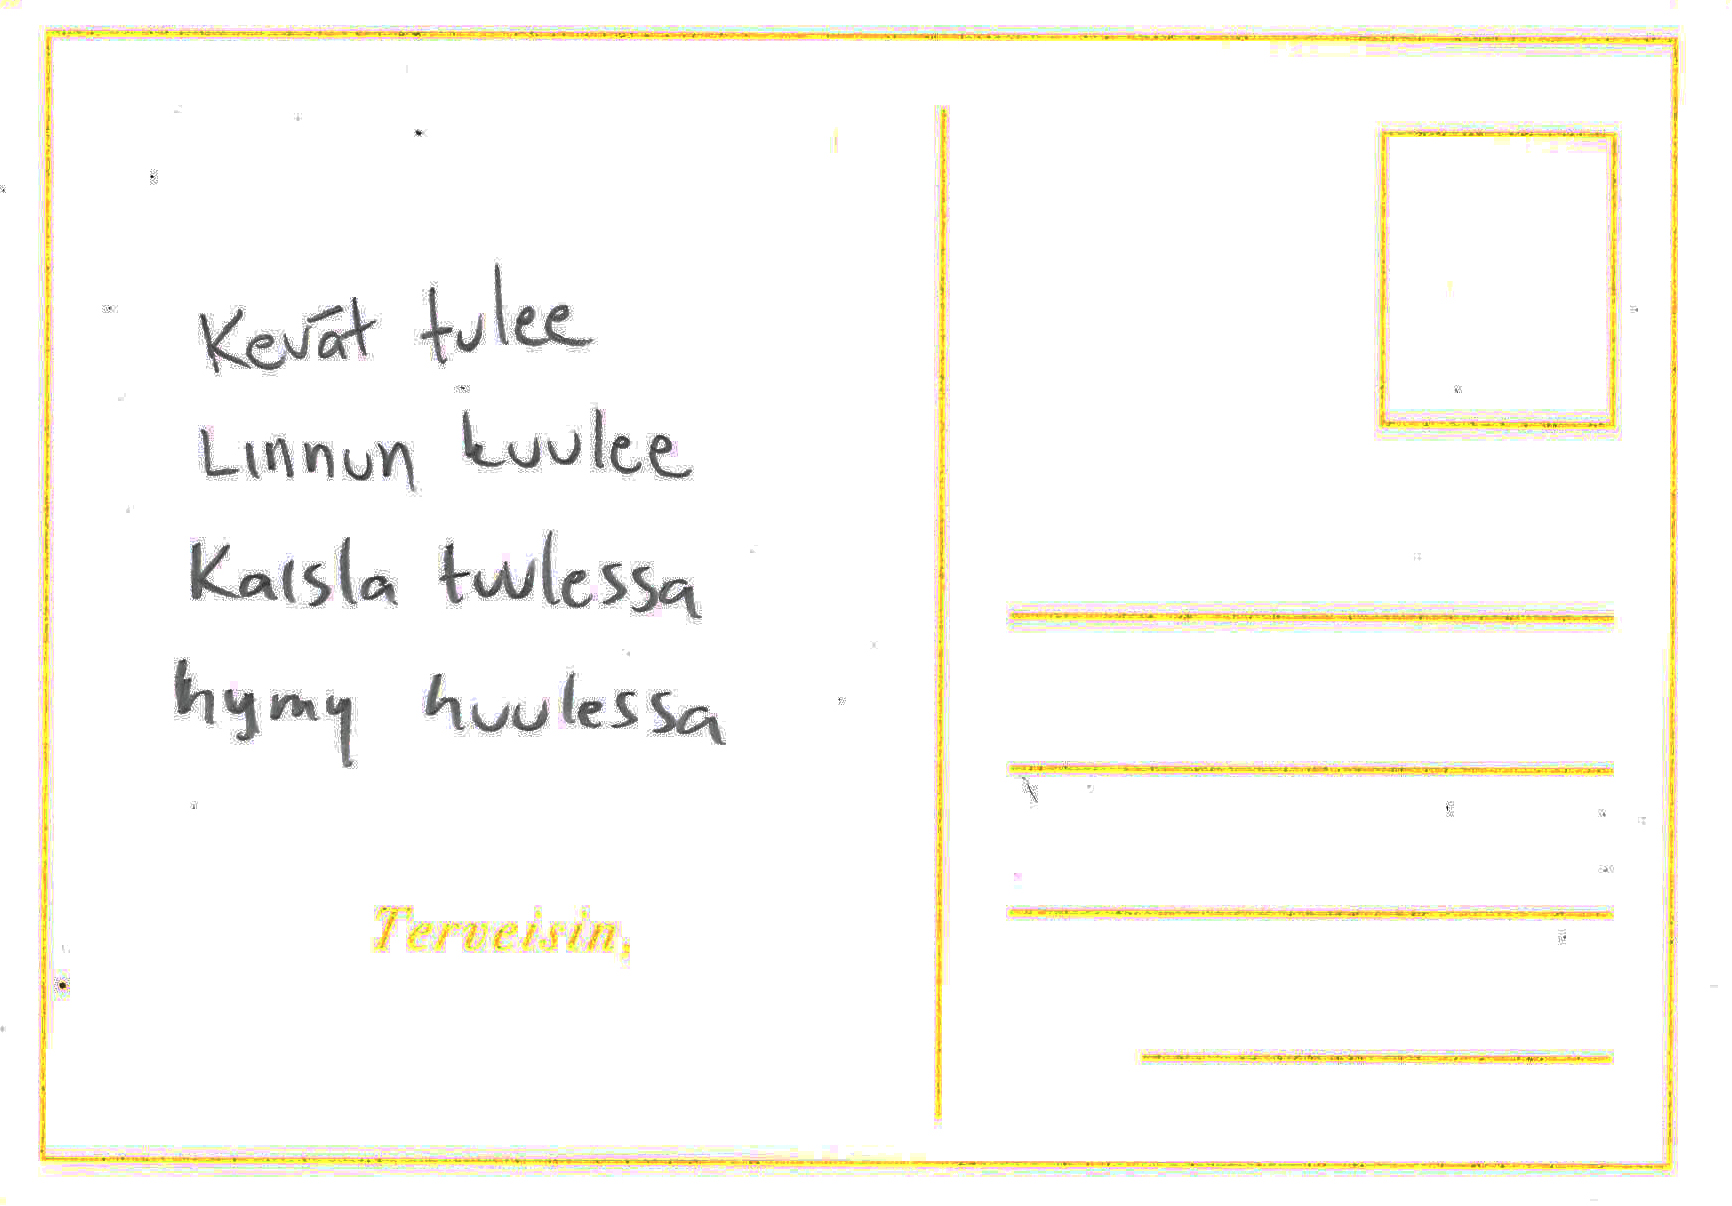 Kevät tulee
Linnun kuulee
Kaisla tuulessa
hymy huulessa
Terveisin,